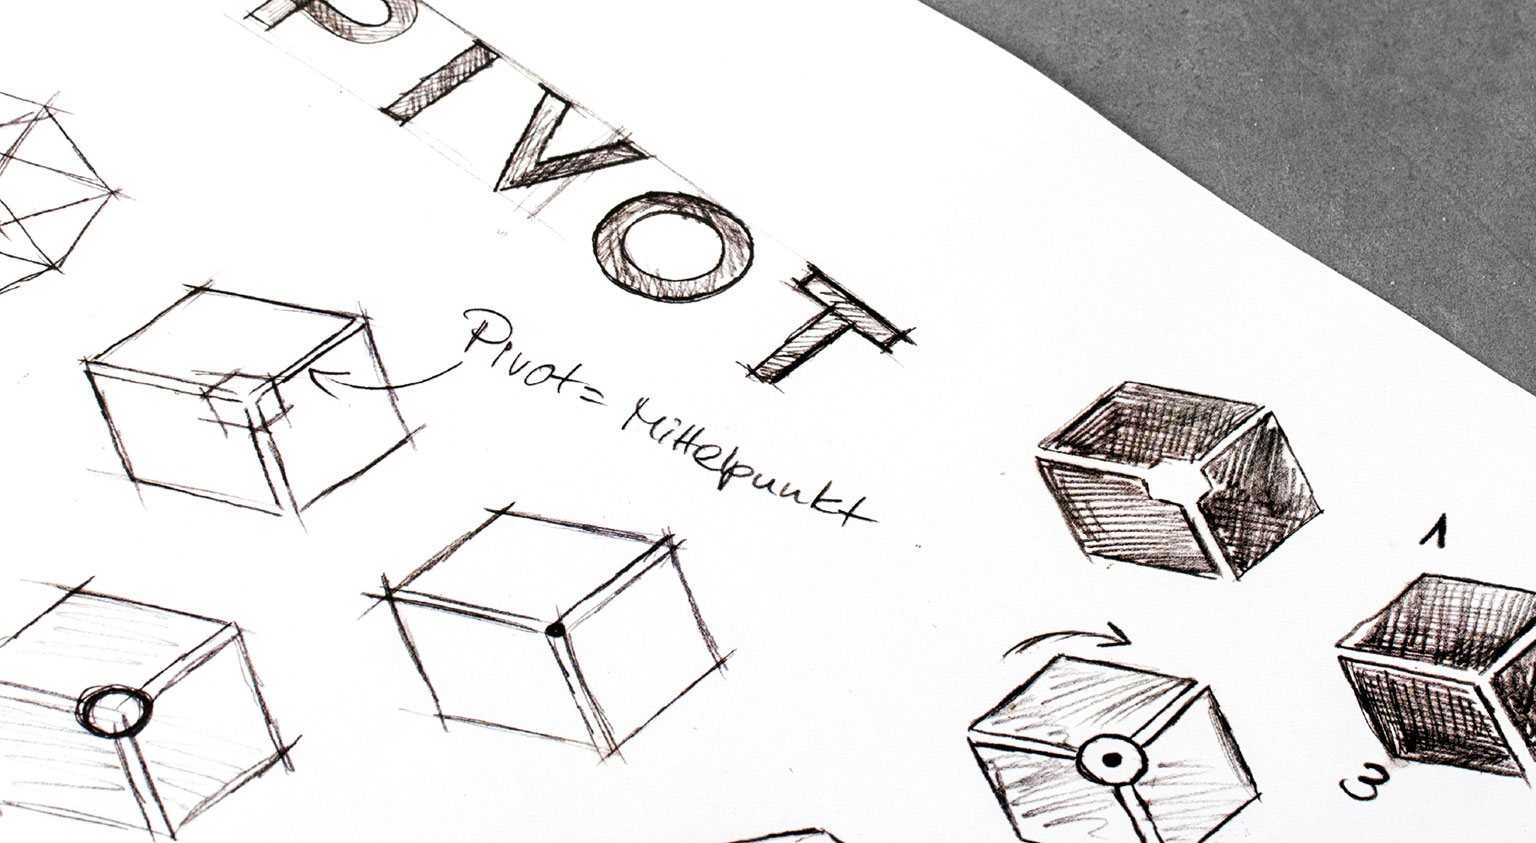 PIVOT
Pivot= Mittelpunkt
1
3